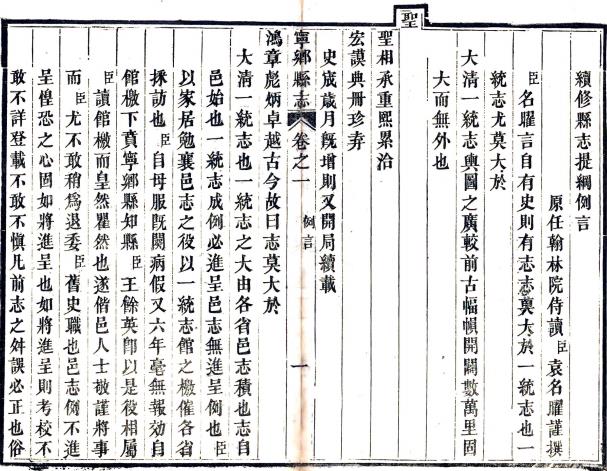 續修縣志提綱例言
原任翰林院侍讀臣袁名曜謹撰
臣名曜言自有史則有志志莫大於一統志也一
統志尤莫大於
大清一統志輿圖之廣較前古幅幀開闢數萬里固
大而無外也
聖
聖相承重熙累洽
宏謨典冊珍弆
史宬歲月既增則又開局續載
寧鄉縣志 卷之一 例言 一
鴻章彪炳卓越古今故曰志莫大於
大清一統志也一統志之大由各省邑志積也志自
邑始也一統志成例必進呈邑志無進呈例也臣
以家居勉襄邑志之役以一統志館之檄催各省
採訪也臣自母服既闋病假又六年毫無報効自
館檄下賁寧鄉縣知縣臣王餘英即以是役相屬
臣讀館檄而皇然瞿然也遂偕邑人士敬謹將事
而臣尤不敢稍爲退委臣舊史職也邑志例不進
呈惶恐之心固如將進呈也如將進呈則考校不
敢不詳登載不敢不慎凡前志之舛誤必正也俗